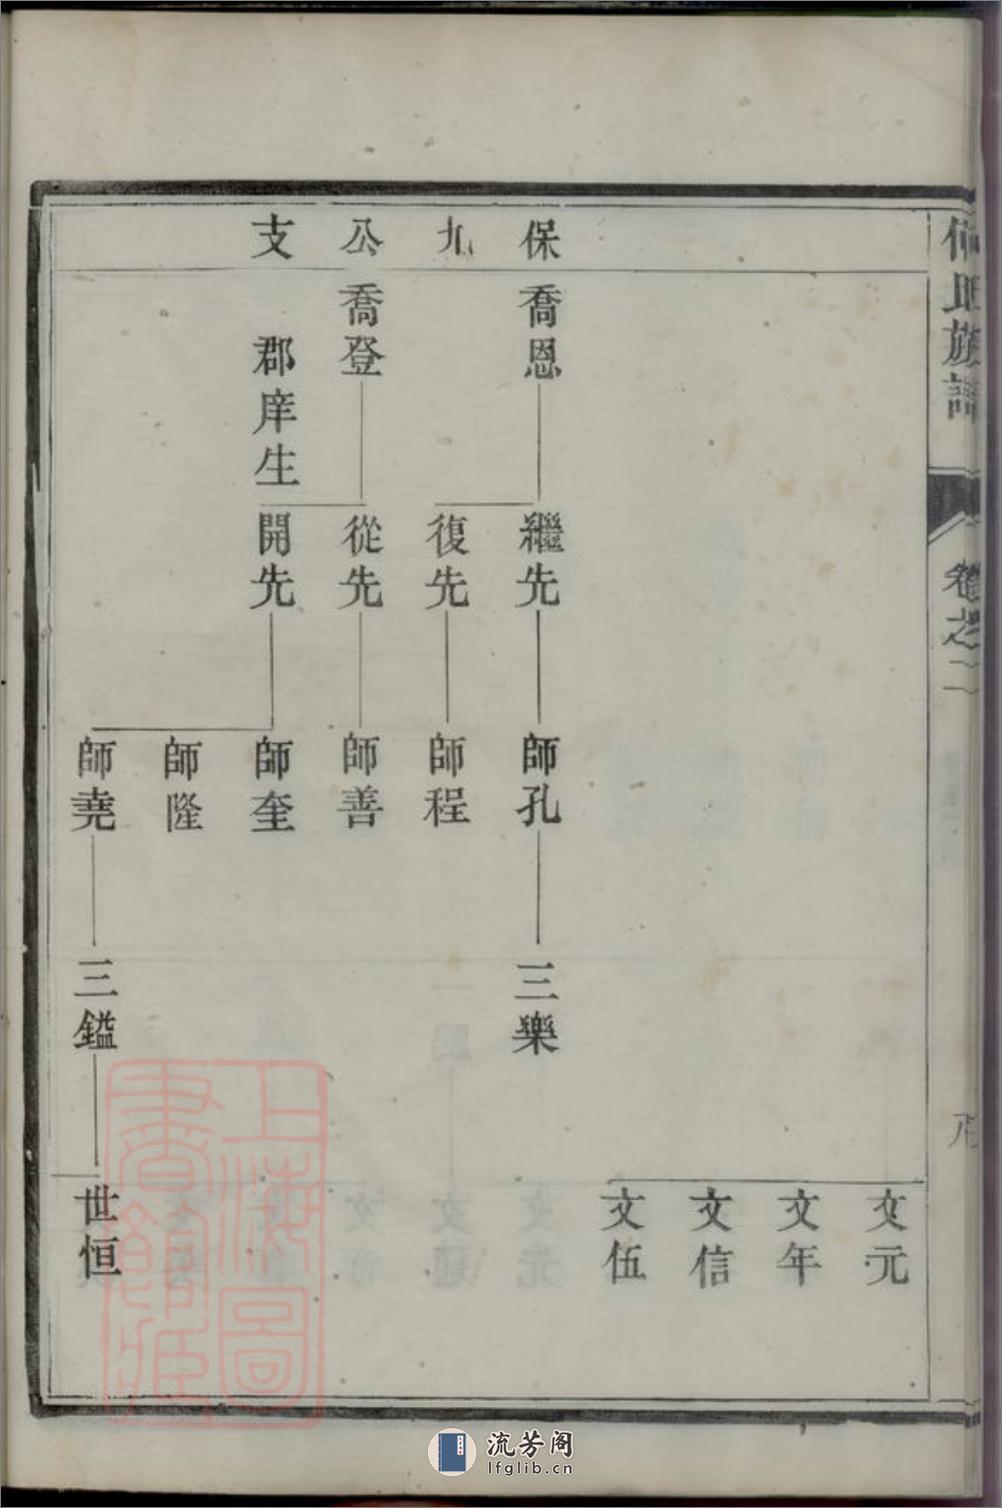 族譜
卷之二
文元
文年
文信
文伍
保九公支
喬恩
繼先
師孔
三樂
復先
師程
喬登
從先
師善
郡庠生
開先
師奎
師隆
師堯
三鎰
世恒
上海圖書館藏
流芳阁
lfglib.cn